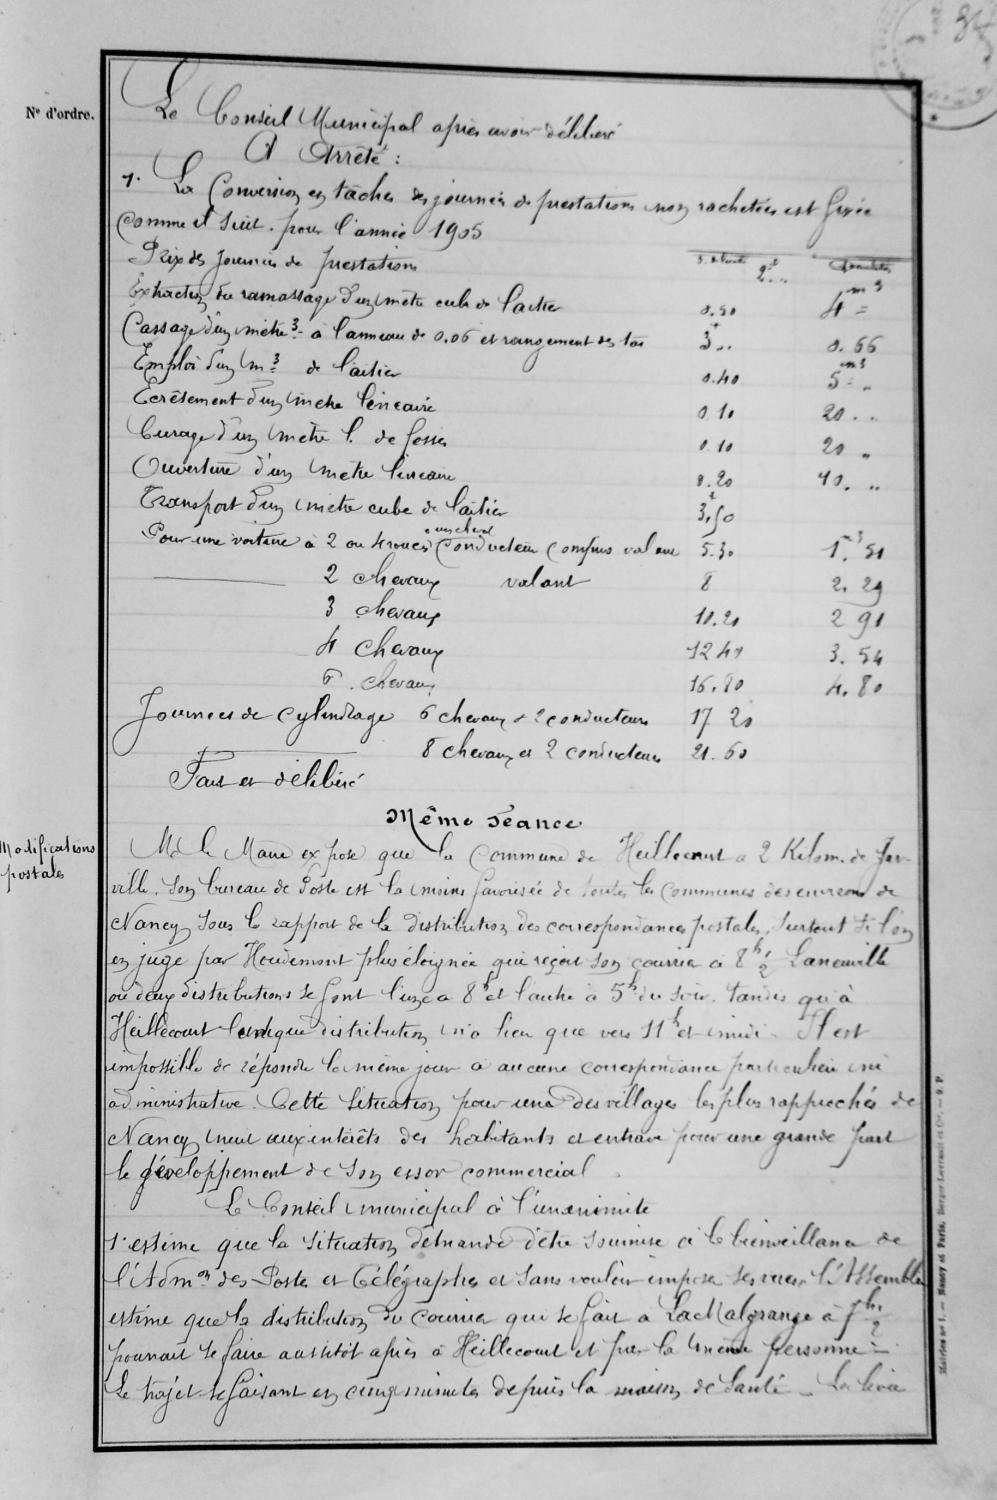 34
N° d'ordre.
Le Conseil Municipal après avoir délibéré
A Arrêté :
1. La Conversion en tâches des journées de prestations non rachetées est fixée
comme il suit. pour l'année 1905
Prix des Journées de prestations 2 "
Extraction ou ramassage d'un mètre cube de laitier 0.50 4 m3 =
Cassage d'un mètre 3 à l'anneau de 0.06 et rangement des tas 3 " 0.66
Emploi d'un m3 de laitier 0.40 5 m3 "
Ecrêtement d'un mètre linéaire 0.10 20 "
Curage d'un mètre l. de fossés 0.10 20 "
Ouverture d'un mètre linéaire 0.20 10. "
Transport d'un mètre cube de laitier 3f,50
Pour une voiture à 2 ou 4 roues à un cheval conducteur compris valant 5.30 1.m3 51
2 chevaux valant 8 2. 29
3 chevaux 10.20 2 91
4 chevaux 12 40 3. 54
6 chevaux 16.80 4.80
Journées de cylindrage 6 chevaux & 2 conducteurs 17 20
8 chevaux et 2 conducteurs 21.60
Fait et délibéré
Même Séance
Modifications
postales
M. le Maire expose que la commune de Heillecourt à 2 Kilom. de Jar-
ville. Son bureau de Poste est la moins favorisée de toutes les communes des environs de
Nancy sous le rapport de la distribution des correspondances postales, surtout si l'on
en juge par Houdemont plus éloignée qui reçoit son courrier à 8h 1/2 Laneuville
où deux distributions se font l'une à 8h et l'autre à 5h du soir. tandis qu'à
Heillecourt l'unique distribution n'a lieu que vers 11h et midi. Il est
impossible de répondre le même jour à aucune correspondance particulière ni
administrative. Cette situation pour une des villages les plus rapprochés de
Nancy nuit aux intérêts des habitants et entrave pour une grande part
le développement de son essor commercial.
Le Conseil municipal à l'unanimité
1° estime que la situation demande d'être soumise à la bienveillance de
l'Admon des Postes et Télégraphes et sans vouloir imposer ses vues, l'Assemblée
estime que la distribution du courrier qui se fait à La Malgrange à 7h 1/2
pourrait se faire aussitôt après à Heillecourt et par la même personne =
Le trajet se faisant en cinq minutes depuis la maison de Santé. La levée
Mairies n° 1. — Nancy et Paris, Berger-Levrault et Cie. — 9. P.